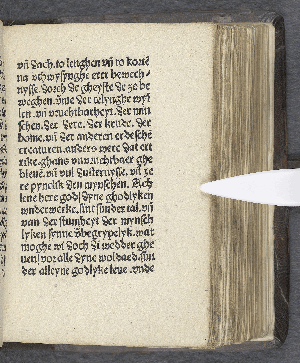 vn dach. to lenghen vn to kortē
na vthwysynghe erer bewech-
nysse. doech de gheyste de ze be
weghen. vme der telynghe wyl
len. vn vruchtbarheyt. der myn
schen. der dere. der krude. der
bome. vn der anderen erdesche
creaturen. anders were dat ert
rike. ghans vnvruchtbaer ghe
bleue. vn vul dusternysse. vn ze
re pynelik den mynschen. Ach
leue here god. dyne ghodlyken
wnderwerke. sint sunder tal. vn
van der stumheyt der mynsch
lyken synne vnbegrypelyk. wat
moghe wi doch di wedder ghe
uen. vor alle dyne woldaed. sun
der alleyne godlyke leue. vnde